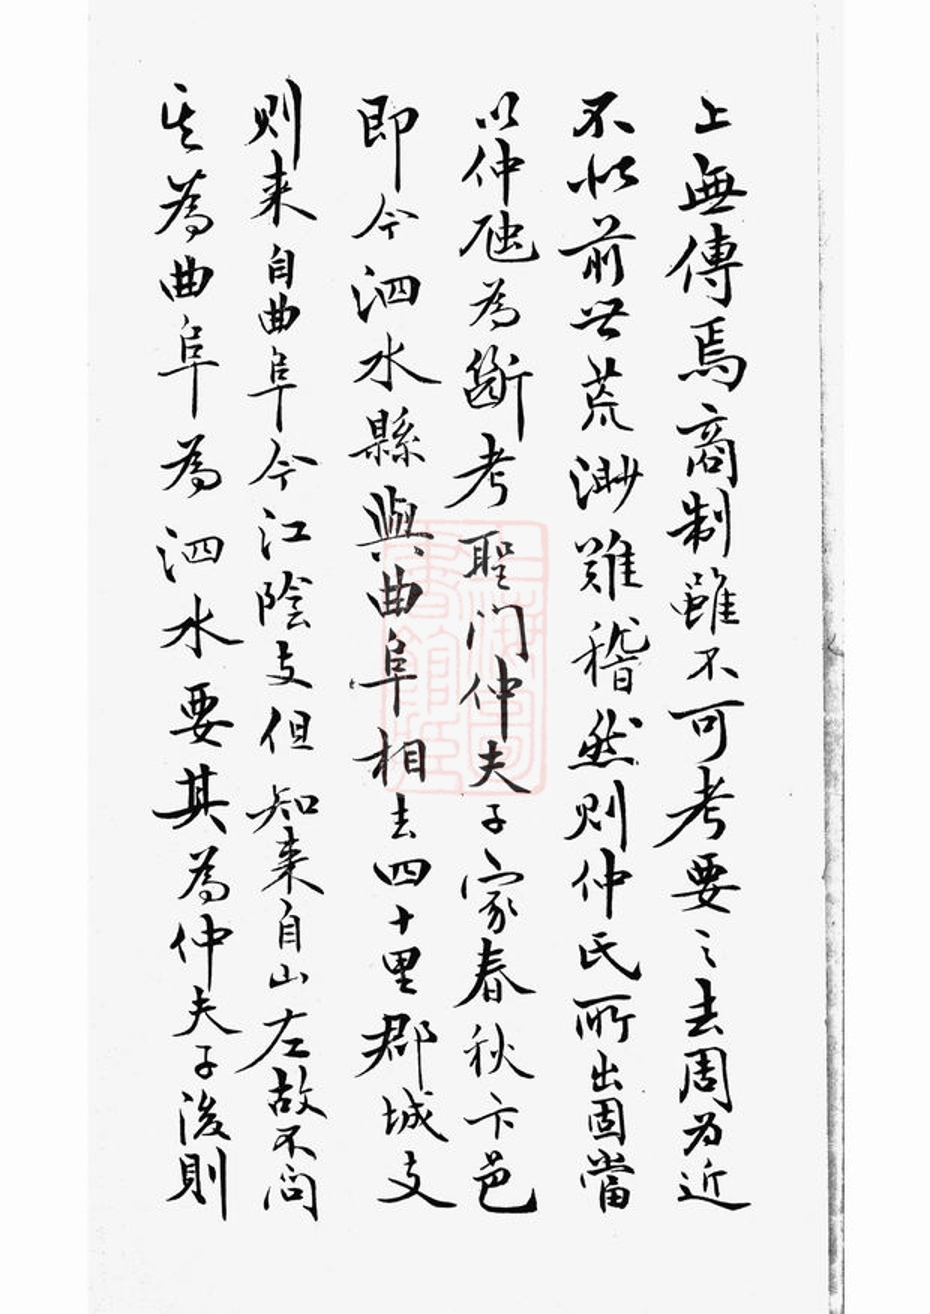 上無傳焉商制雖不可考要之去周为近
不似前世荒渺難稽然则仲氏所出固當
以仲虺為斷考聖门仲夫子家春秋卞邑
即今泗水縣與曲阜相去四十里郡城支
则来自曲阜今江陰支但知来自山左故不问
其為曲阜為泗水要其為仲夫子後則
上海圖書館藏